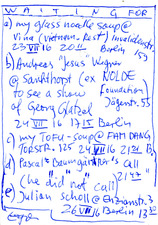 WAITING FOR
a) my glass noodle soup @
Vina (Vietnam. Rest) Invalidenstr.
23 VII 16 20 Berlin
b) Andreas "Jesus" Wagner
@ Sankthorst (ex NOLDE
to see a show Foundation
of Georg Glatzel Jägerstr. 55
24 VII 16 17 15 Berlin
c) my TOFU-soup @ PHAM DANG,
TORSTR. 125 24 VII 16 21 B
d) Pascal Baumgärtner's call
(he "did" not call) 21
e) Julian Scholl @
26 VII 16 Berlin 13